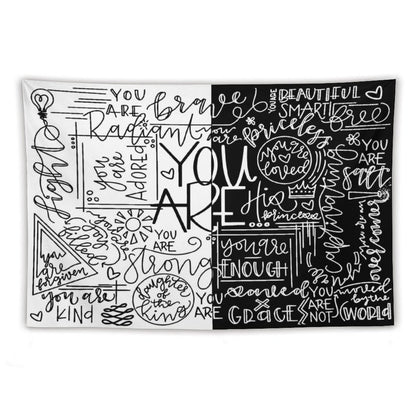 YOU
ARE
brave
Radiant
you
are
ADORED
light
YOU
ARE
you
are
forgiven
YOU
ARE
Strong
daughter
of the
king
you are
KIND
YOU ARE
BEAUTIFUL
SMART
free
you are
priceless
you are
loved
YOU
ARE
salt
His
princess
captivating
overcomer
you are
ENOUGH
saved
by
GRACE
YOU
ARE
NOT
owned
by the
WORLD